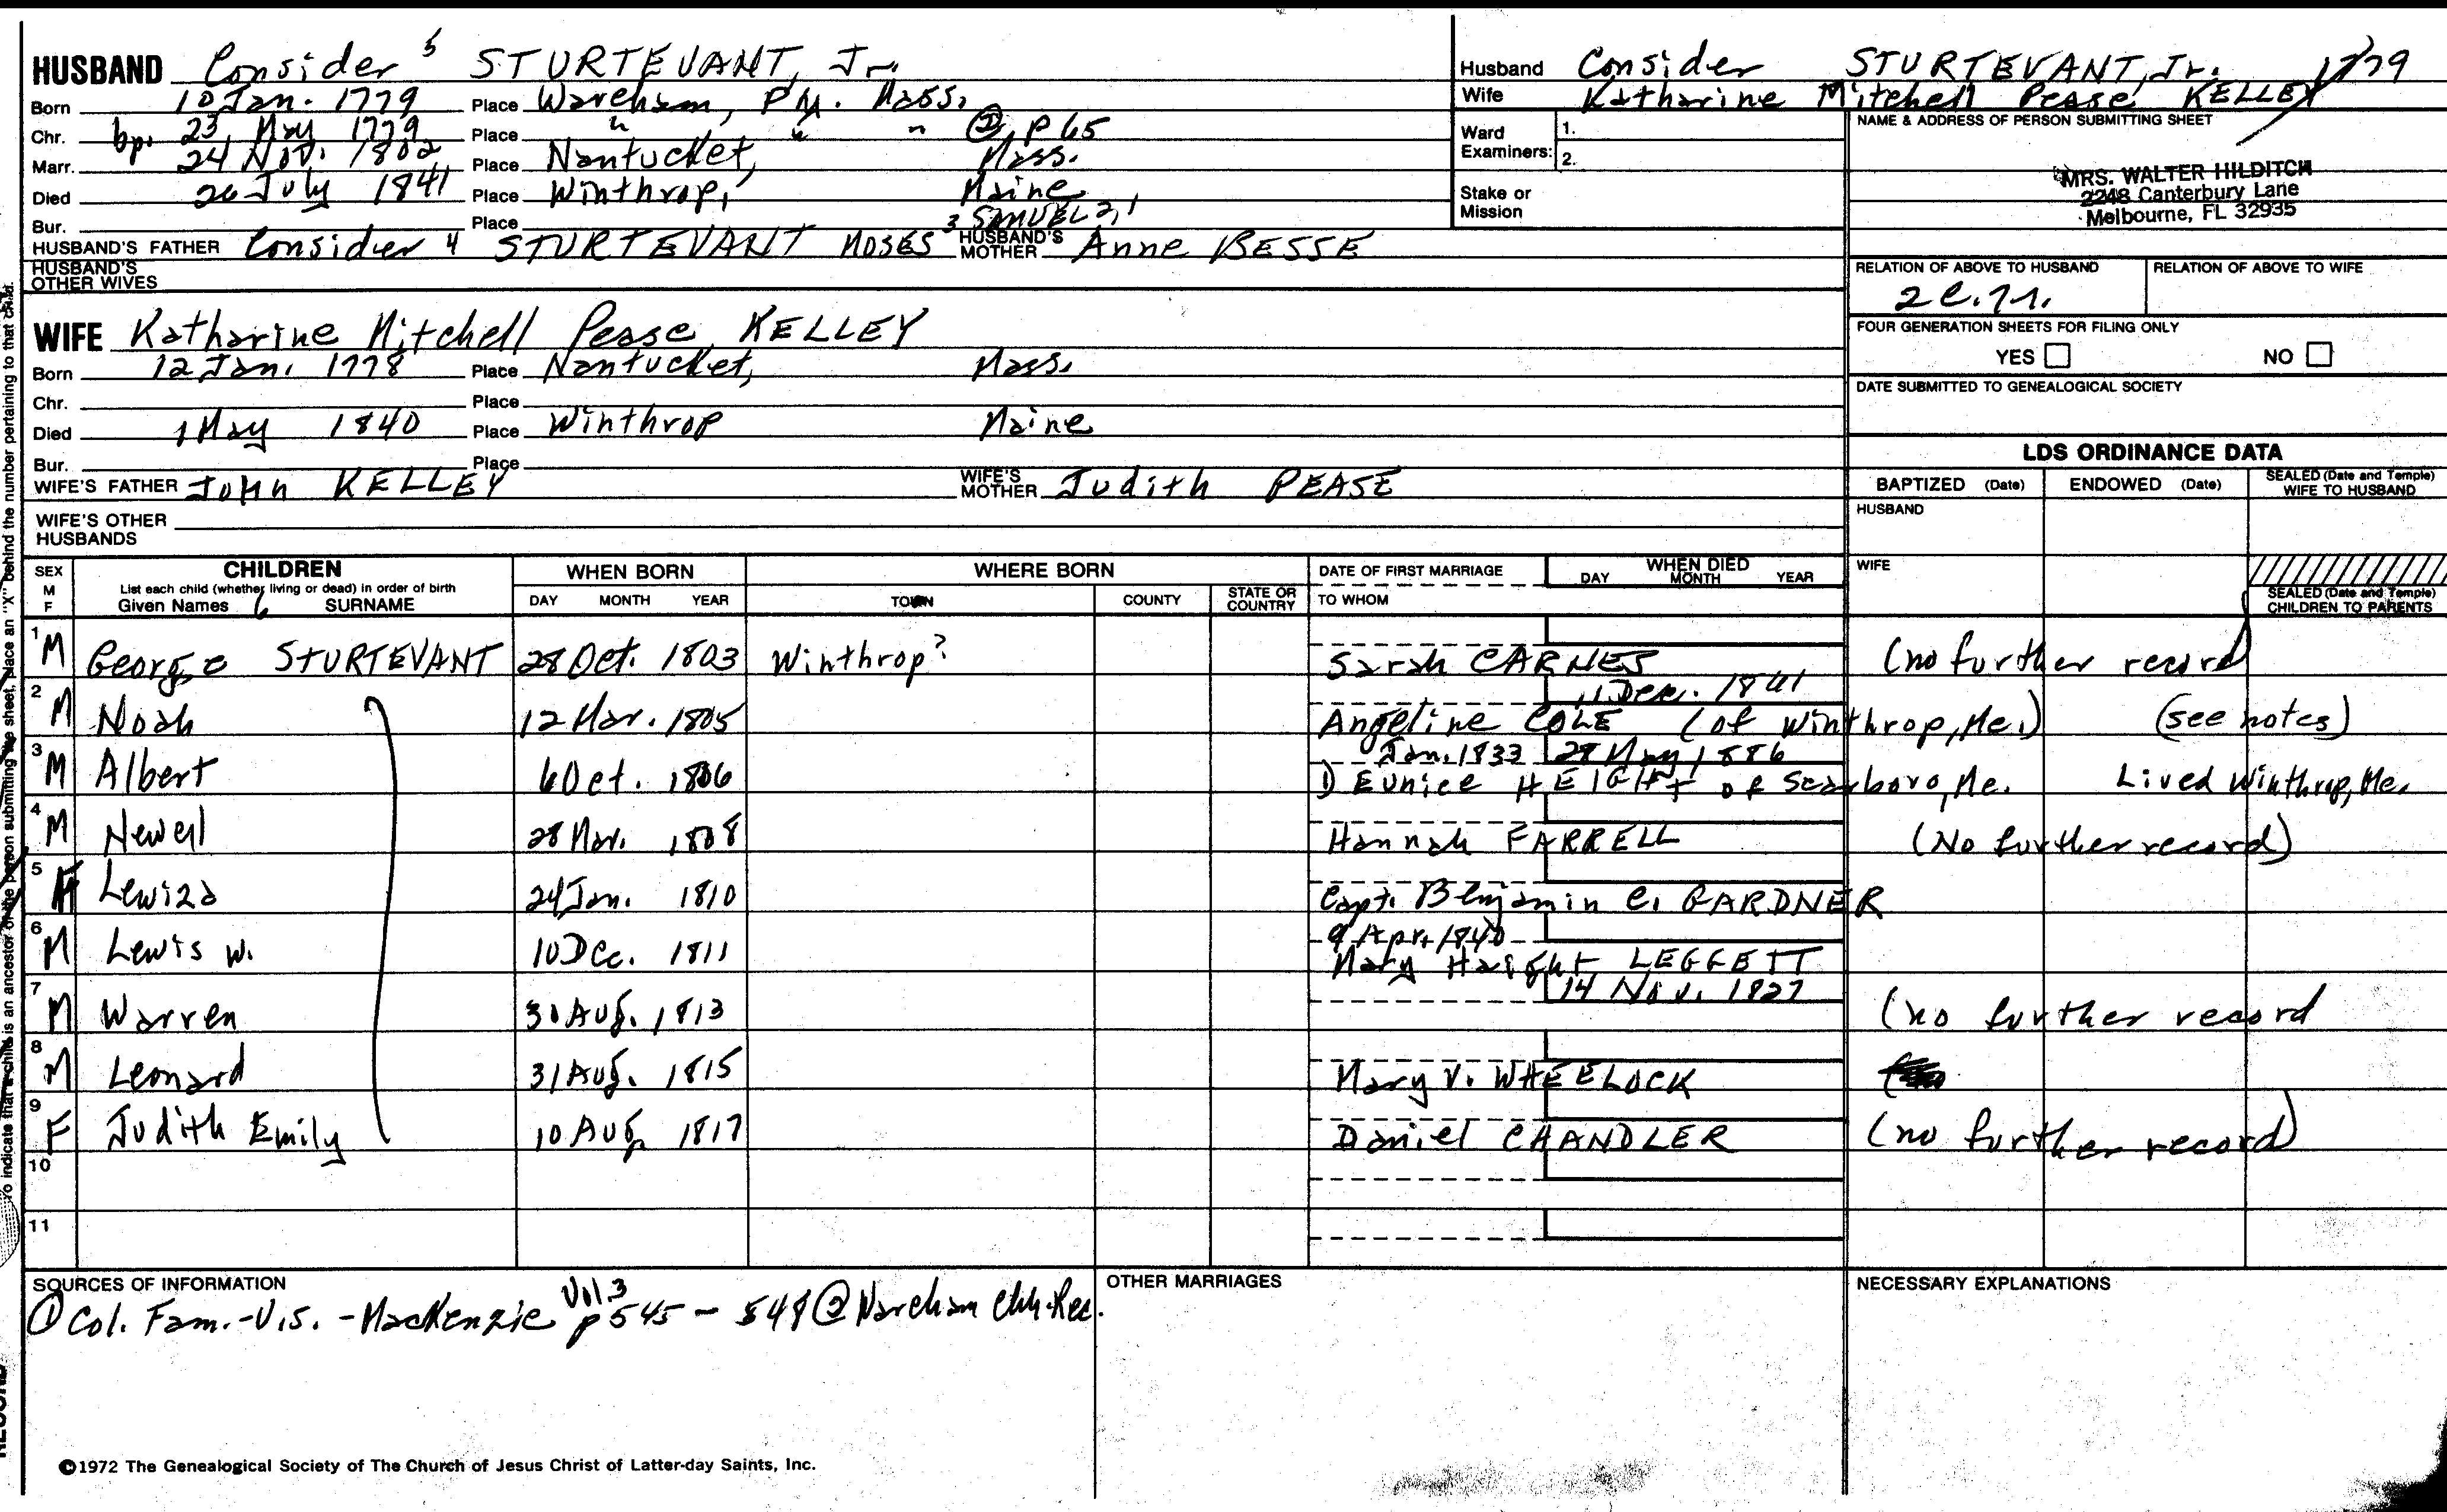 HUSBAND Consider 5 STURTEVANT, Jr.
Born 10 Jan. 1779 Place Wareham, Ply. Mass.
Chr. bp. 23 May 1779 Place " " " ② p 65
Marr. 24 Nov. 1802 Place Nantucket, Mass.
Died 26 July 1841 Place Winthrop, Maine
Bur. Place
HUSBAND'S FATHER Consider 4 STURTEVANT MOSES 3 SAMUEL 2,1 HUSBAND'S MOTHER Anne BESSE
HUSBAND'S OTHER WIVES
WIFE Katharine Mitchell Pease KELLEY
Born 12 Jan. 1778 Place Nantucket, Mass.
Chr. Place
Died 1 May 1840 Place Winthrop Maine
Bur. Place
WIFE'S FATHER John KELLEY WIFE'S MOTHER Judith PEASE
WIFE'S OTHER HUSBANDS
Husband Consider STURTEVANT, Jr. 1779
Wife Katharine Mitchell Pease KELLEY
Ward Examiners: 1.
2.
Stake or Mission
NAME & ADDRESS OF PERSON SUBMITTING SHEET
MRS. WALTER HILDITCH
2248 Canterbury Lane
Melbourne, FL 32935
RELATION OF ABOVE TO HUSBAND RELATION OF ABOVE TO WIFE
FOUR GENERATION SHEETS FOR FILING ONLY
YES NO
DATE SUBMITTED TO GENEALOGICAL SOCIETY
LDS ORDINANCE DATA
BAPTIZED (Date) ENDOWED (Date) SEALED (Date and Temple) WIFE TO HUSBAND
HUSBAND
WIFE
SEALED (Date and Temple) CHILDREN TO PARENTS
SEX M F CHILDREN WHEN BORN WHERE BORN DATE OF FIRST MARRIAGE WHEN DIED
List each child (whether living or dead) in order of birth
Given Names 6 SURNAME DAY MONTH YEAR TOWN COUNTY STATE OR COUNTRY TO WHOM DAY MONTH YEAR
1 M George STURTEVANT 28 Oct. 1803 Winthrop? Sarah CARNES (no further record)
11 Dec. 1841
2 M Noah 12 Mar. 1805 Angeline COLE (of Winthrop, Me.) (see notes)
Jan. 1833 28 May 1886
3 M Albert 6 Oct. 1806 1) Eunice HEIGHT of Scarboro, Me. Lived Winthrop, Me.
4 M Newell 28 Mar. 1808 Hannah FARRELL (No further record)
5 F Lewiza 24 Jan. 1810 Capt. Benjamin C. GARDNER
9 Apr. 1840
6 M Lewis W. 10 Dec. 1811 Mary Haight LEGGETT
14 Nov. 1827
7 M Warren 30 Aug. 1813 (no further record
8 M Leonard 31 Aug. 1815 Mary V. WHEELOCK
9 F Judith Emily 10 Aug 1817 Daniel CHANDLER (no further record)
10
11
SOURCES OF INFORMATION
① Col. Fam.-U.S. - MacKenzie Vol 3 p 545 - 548 ② Wareham Chh. Rec.
OTHER MARRIAGES
NECESSARY EXPLANATIONS
©1972 The Genealogical Society of The Church of Jesus Christ of Latter-day Saints, Inc.
To indicate that a child is an ancestor of the person submitting the sheet, place an "X" behind the number pertaining to that child.